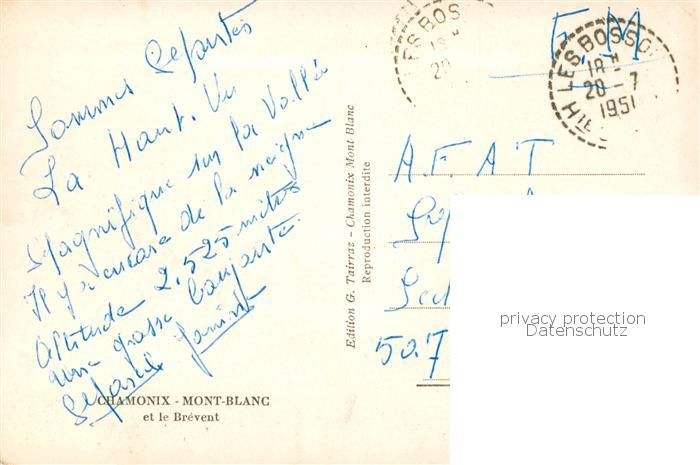 Sommes
La Haut. Vu
Magnifique sur la Vallée
Il y a encore de la neige
Altitude 2.525 mètres
une grosse
CHAMONIX - MONT-BLANC
et le Brévent
Edition G. Tairraz - Chamonix Mont-Blanc
Reproduction interdite
LES BOSSO
18 H
28
F.M
LES BOSSO
18 H
28 - 7
1951
HTE
A.F.A.T
507
privacy protection
Datenschutz